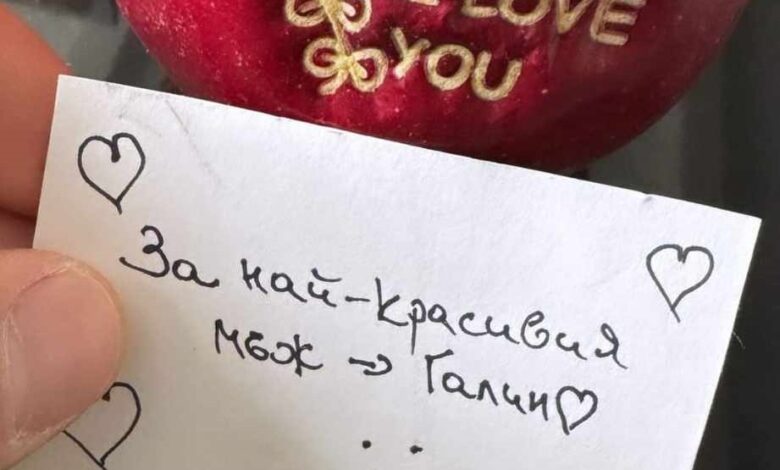 I LOVE
YOU
За най-красивия
мъж → Галин♡